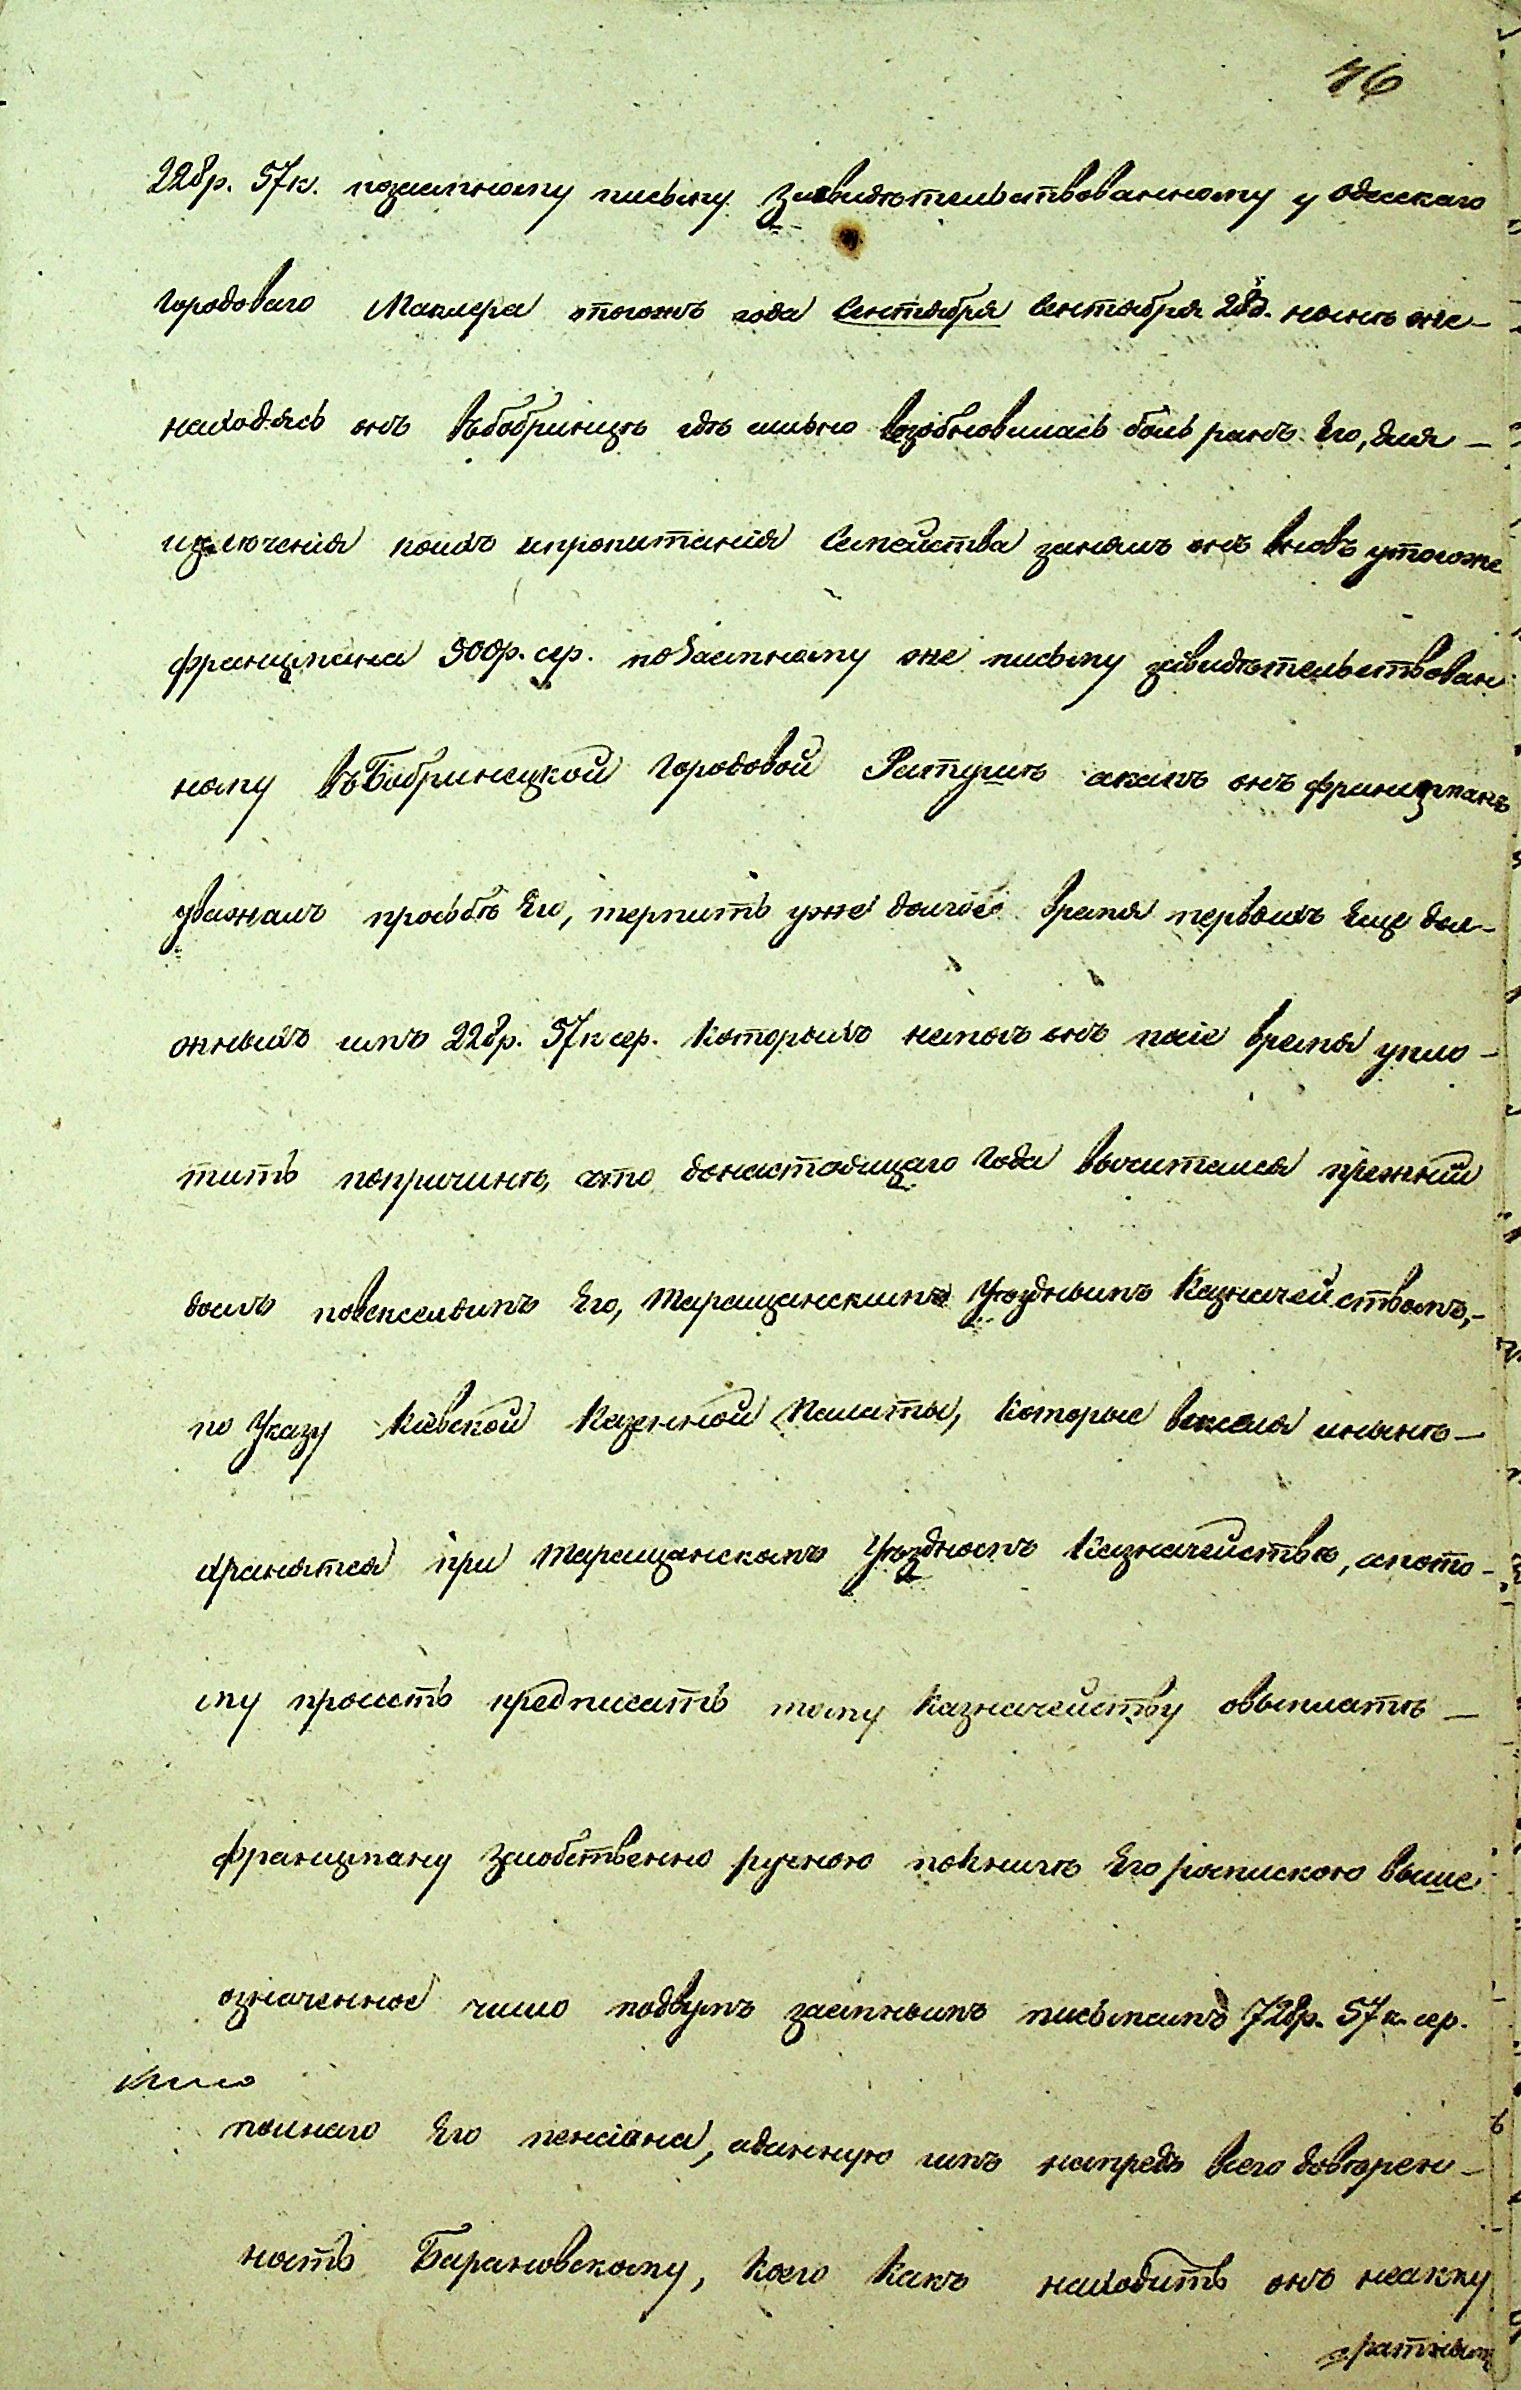 46
228р. 57к. позаемному письму засвидѣтельствованному у одескаго
городоваго Маклера тогожъ года Сентября Сентября 28д. нынѣ же
находясь онъ въбобринцѣ гдѣ сильно возобновилась боль ранъ Его, для
излѣченія коихъ ипропитанія Семейства занялъ онъ вновь утогоже
францмана 500р. сер. поЗаемному же письму засвидѣтельствован
ному въБобринецкой Городовой Ратушѣ акакъ онъ францманъ
уважалъ прозьбѣ Его, терпитъ уже долгое время первыхъ Еще дол-
жныхъ имъ 228р. 57к сер. Которыхъ немогъ онъ посіе время упло-
тить попричинѣ, что донастоящаго Года вычитался прежній
долгъ повекселямъ Его, Таращанскимъ Уѣзднымъ Казначействомъ,-
по Указу Кіевской Казенной Палаты, Которые векселя инынѣ-
хранятся при Таращанскомъ Уѣздномъ Казначействѣ, апото-
му проситъ предписать тому Казначейству овыплатѣ-
францману засобственно ручною покнигѣ Его роспискою выше
означенное число подвумъ заемнымъ письмамъ 728р. 57к. сер.
полнаго Его пенсіона, аданную имъ напредъ Сего довѣрен-
ность Барановскому, Коего Какъ находитъ онъ неакку
ратнымъ